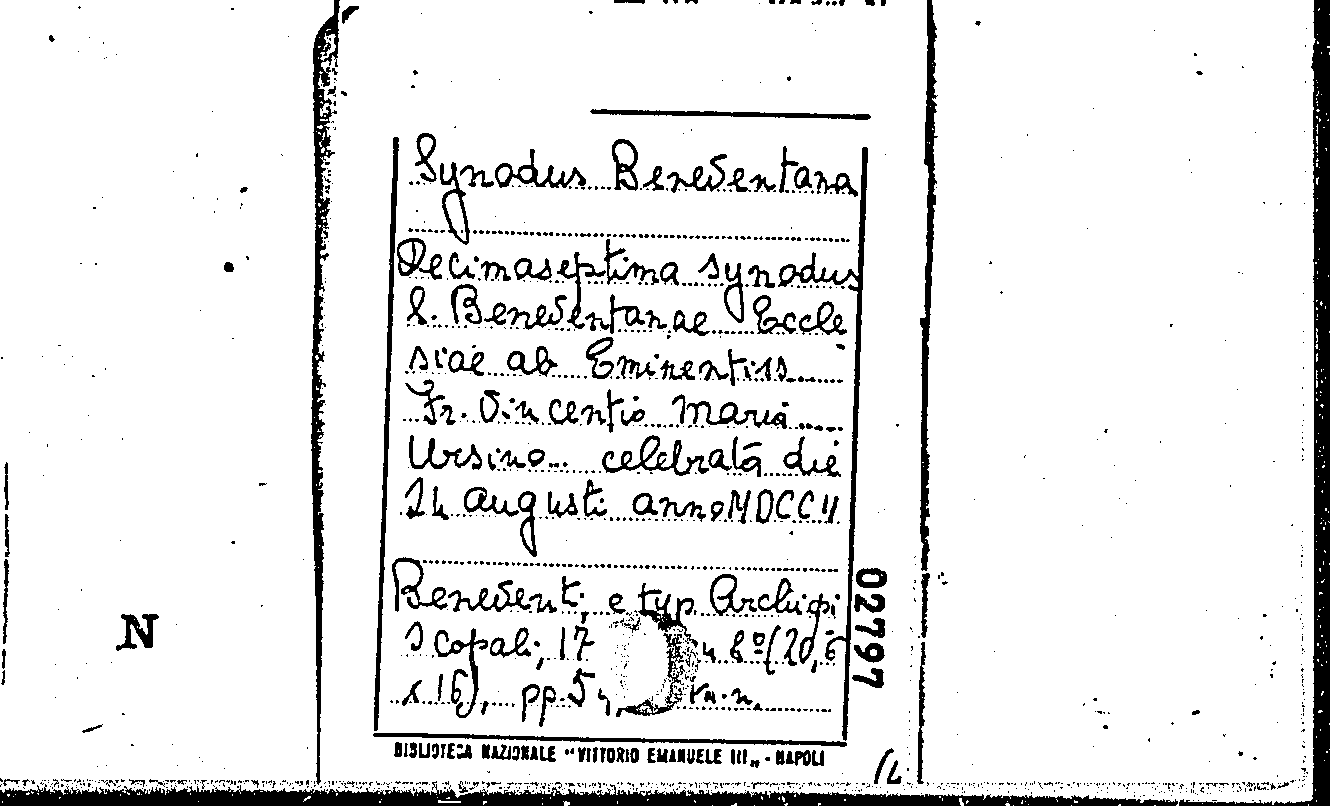 Synodus Beneventana
Decimaseptima synodus
S. Beneventanae Eccle
siae ab Eminentiss.....
Fr. Vincentio Maria.....
Ursino... celebrata die
24 augusti anno MDCCII
Benevent; e typ Archiepi
scopali, 17
8º (20,6
x 16), pp. 5
02797
N
BIBLIOTECA NAZIONALE "VITTORIO EMANUELE III„ - NAPOLI